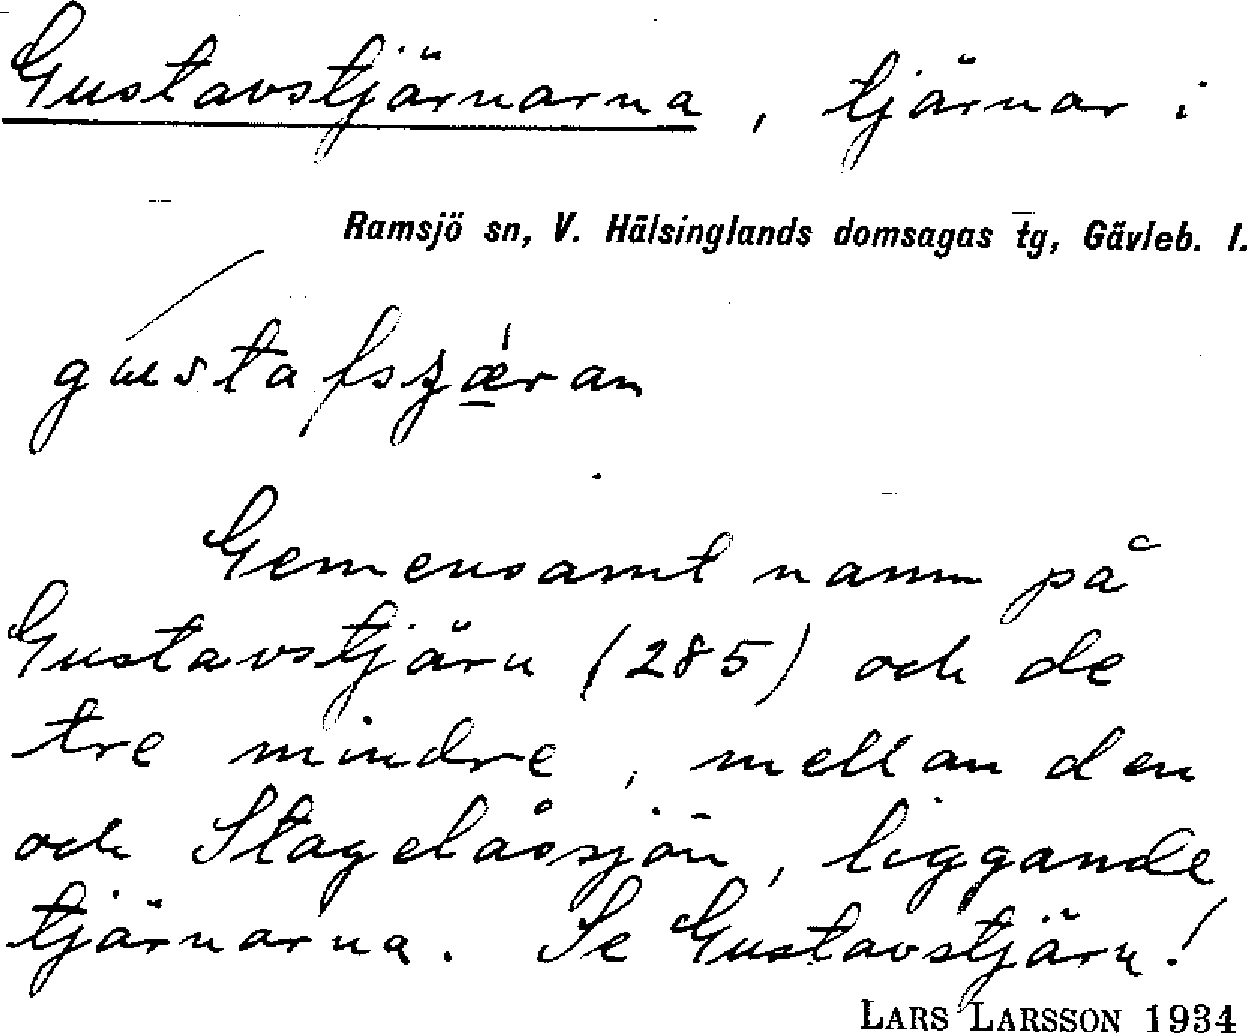 Gustavstjärnarna, tjärnar i
Ramsjö sn, V. Hälsinglands domsagas tg, Gävleb. l.
Gemensamt namn på
Gustavstjärn (285) och de
tre mindre, mellan den
och Stagelåssjön, liggande
tjärnarna. Se Gustavstjärn!
LARS LARSSON 1934